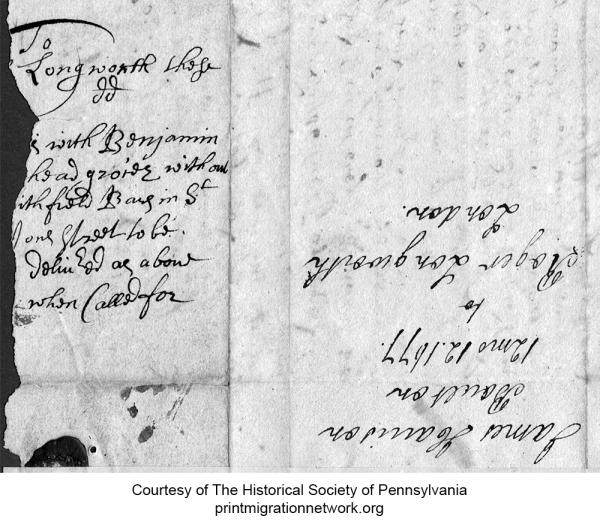 To
Longworth these
dd
with Benjamin
head grocer without
ithfield Bars in St
Jones Street to be
deliu'ed as above
when Called for
James Harrison
Boulton
12mo 12. 1677.
to
Roger Longworth
London.
Courtesy of The Historical Society of Pennsylvania
printmigrationnetwork.org